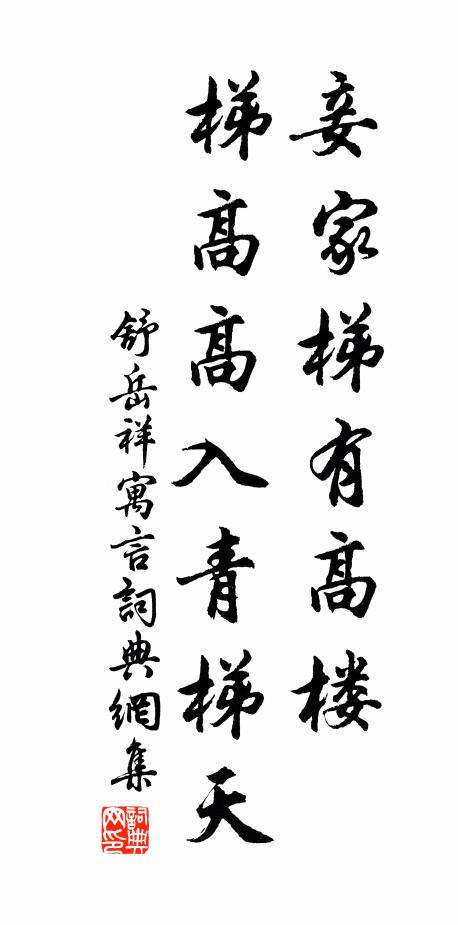 妾家梯有高楼
梯高高入青梯天
舒岳祥寓言詞典網集
詞典网印